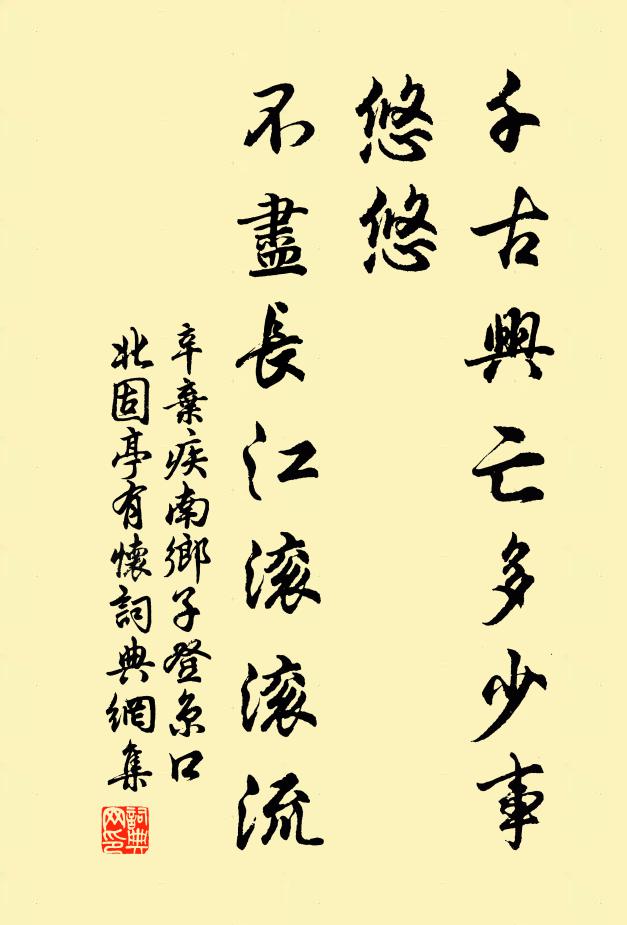 千古興亡多少事
悠悠
不盡長江滚滚流
辛棄疾南鄉子登京口
北固亭有懷詞典網集
詞典
网印